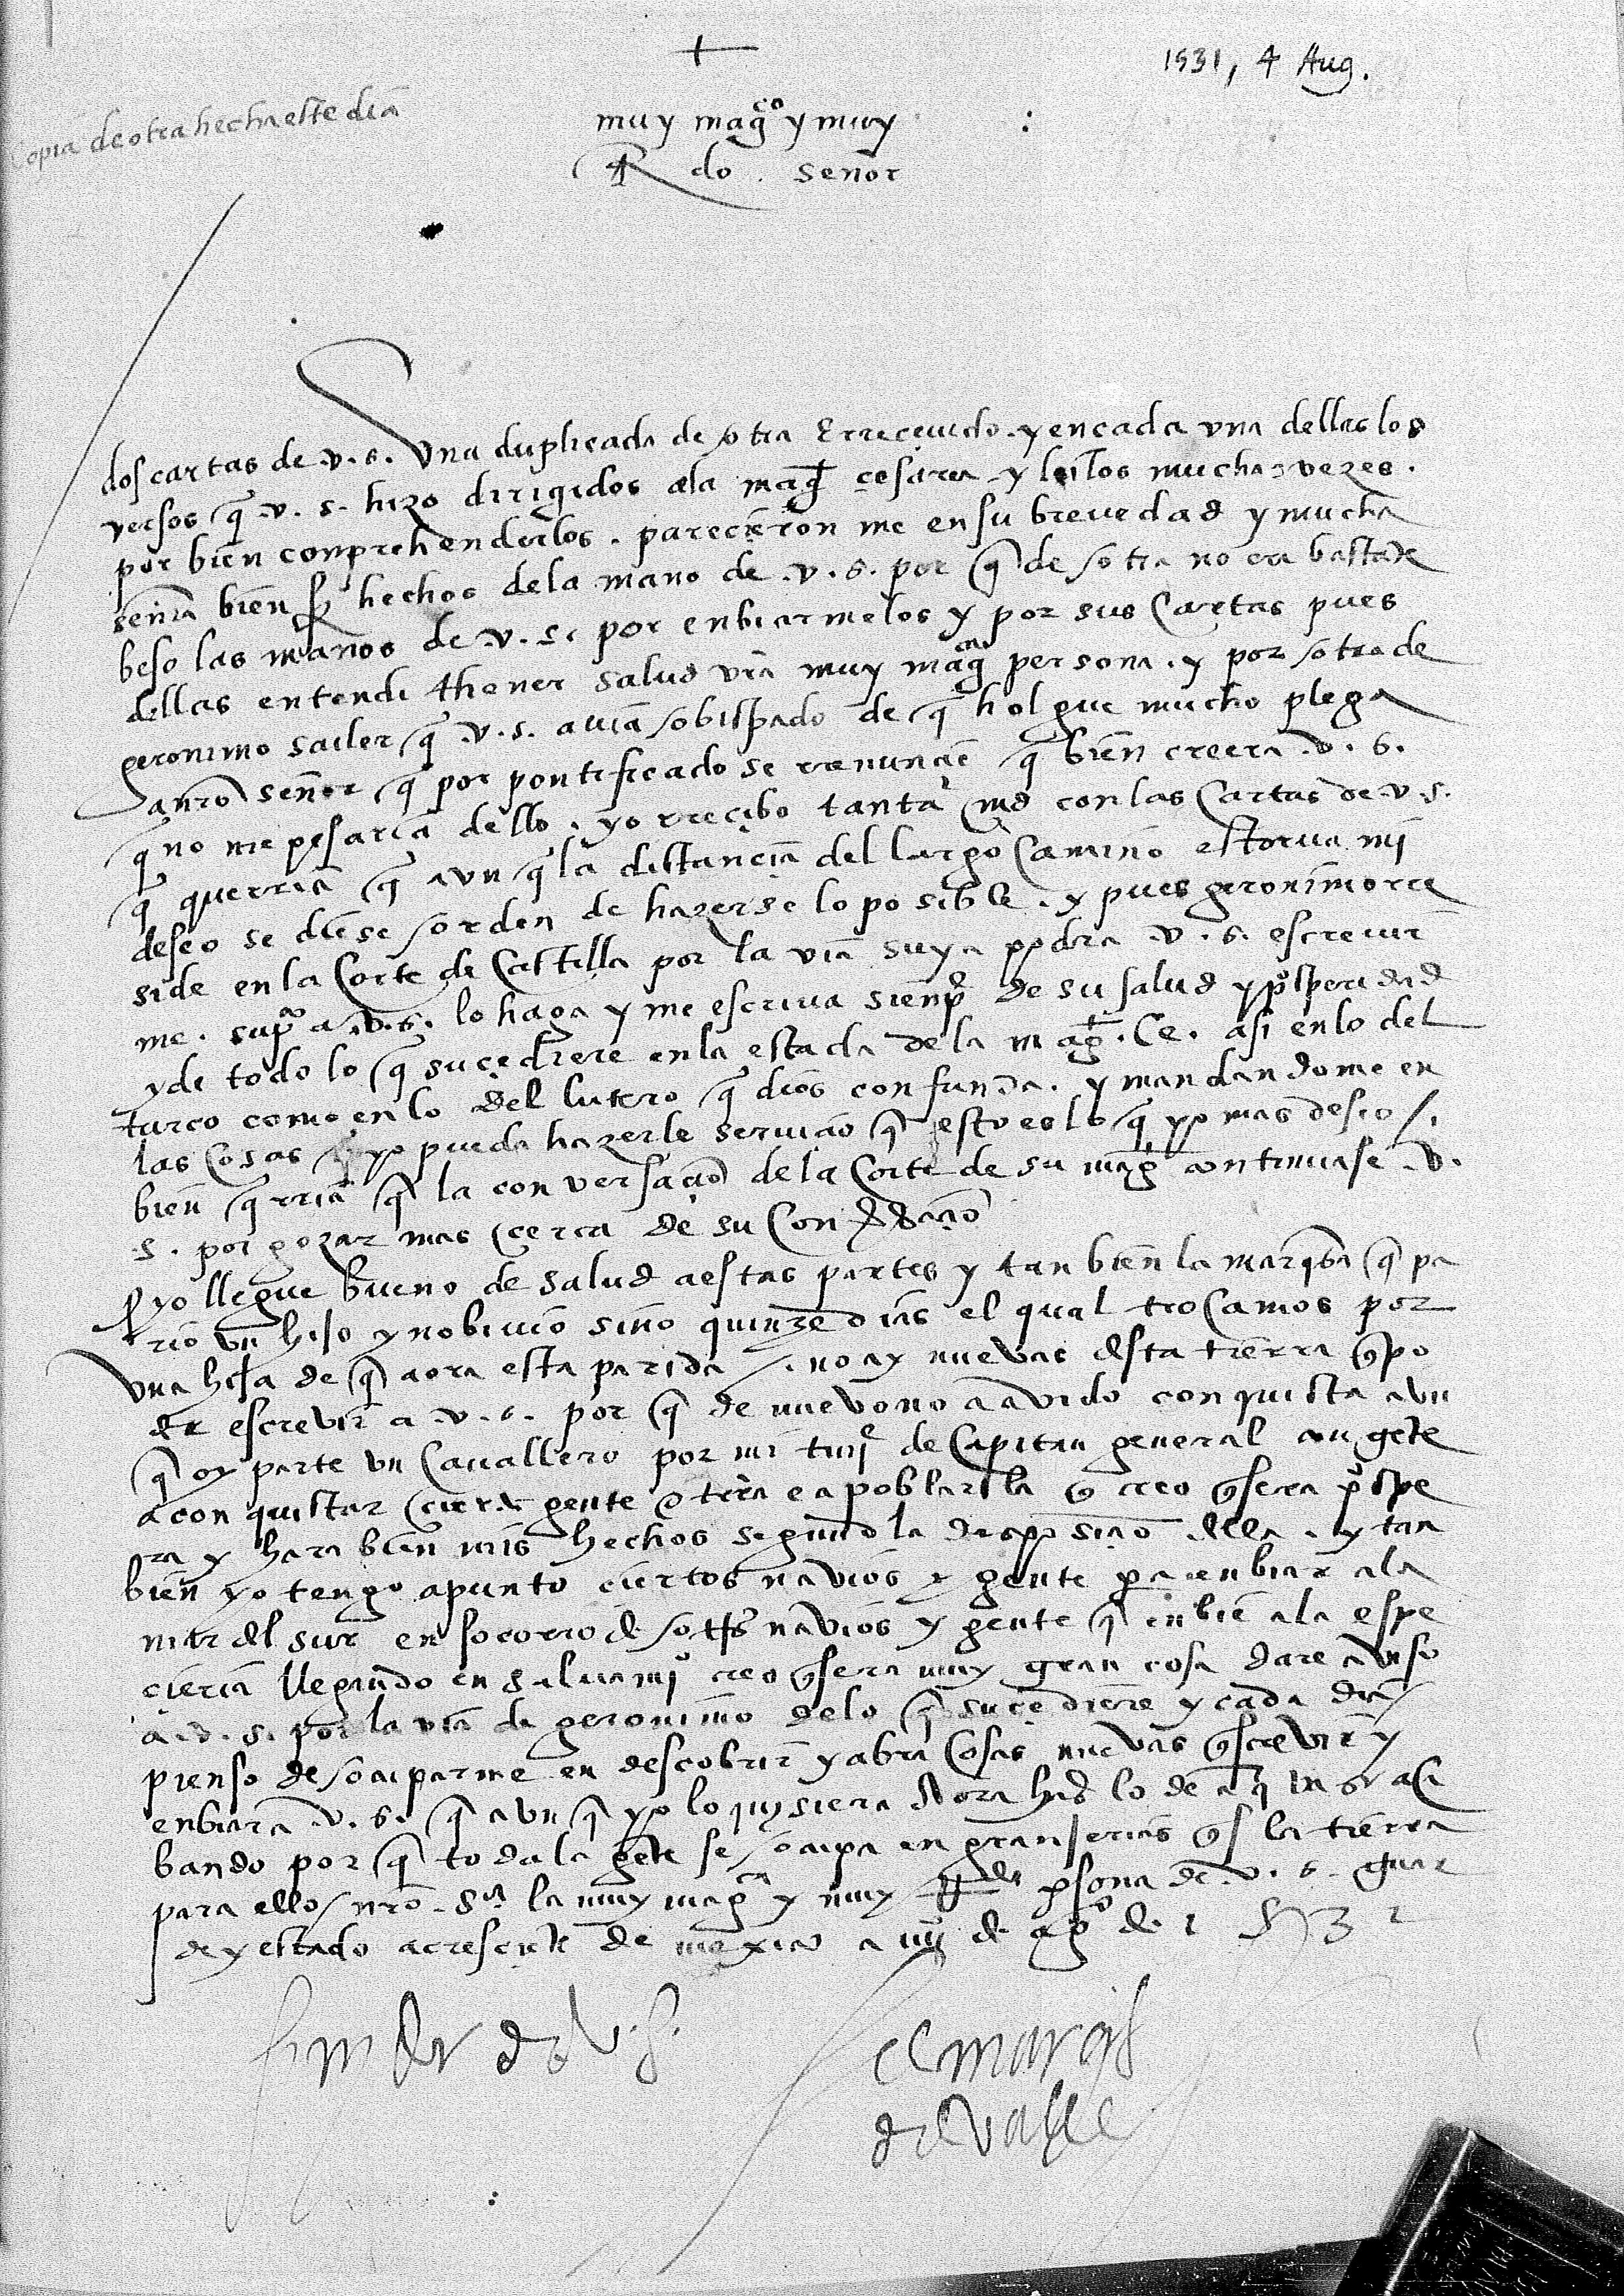 +
1531, 4 Aug.
Copia de otra hecha este dia
muy mag.co y muy :
R do . señor
dos cartas de .v.s. Una duplicada de otra E rreceuido . y en cada vna dellas los
versos q .v.s. hizo dirigidos a la mag.t cesarea . y leilos muchas vezes .
por bien conprehenderlos . parecieron me en su brevedad y mucha
senia bien ser hechos dela mano de .v.s. por q de otra no era bastate
beso las manos de .v.s. por enbiarmelos y por sus Cartas pues
dellas entendi thener salud vra muy mag.ca persona . y por otra de
geronimo sailer q .v.s. avia obispado de q holgue mucho plega
a nro señor q por pontificado se rrenuncie q bien creera .v.s.
q no me pesaria dello . yo rrecibo tanta md con las Cartas de .v.s.
q querria q avn q la distancia del largo Camino estorua mi
deseo se diese orden de hazerse lo posible . y pues geronimo rre
side en la Corte de Castilla por la via suya podra .v.s. escreuir
me . sup.co a .v.s. lo haga y me escriua sienpr de su salud y prosperidad
y de todo lo q sucediere en la estada de la mag.t . Ce . asi en lo del
turco como en lo del lutero q dios confunda . y mandandome en
las Cosas q yo pueda hazerle seruicio q esto es lo q yo mas deseo /.
bien qrria q la conversacio de la Corte de su mag.t continuase .v.
s. por gozar mas cerca de su Con
yo llegue bueno de salud a estas partes y tan bien la marqsa q pa
rio vn hijo y no biuio sino quinze dias el qual trocamos por
vna hija de q aora esta parida /. no ay nuevas desta tierra q po
der escrevir a .v.s. por q de nuevo no a avido conquista avn
q oy parte vn Cavallero por mi tinj.e de Capitan general con gete
a conquistar cierta gente e trra e a poblarla q creo q sera prospe
ra y hara bien mis hechos segund la dispusicio della . y tan
bien yo tengo apunto ciertos navios y gente pa enbiar a la
mar del sur en socorro de otros navios y gente q enbie a la espe
cieria llegando en saluami.o creo q sera muy gran cosa dare aviso
a .v.s. por la via de geronimo delo q sucediere y cada dia /
pienso de ocuparme en descobrir y abra Cosas nuevas q screvir y
enbiar a .v.s. q avn q yo lo quisiera aora has lo de aq va aca
bando por q toda la gete se ocupa en granjerias q es la tierra
para ello / nro . s.or la muy mag.ca y muy R.da psona de .v.s. guar
de y estado acresciete de mexico a iiij de ag.o de 1531
seruidor de V.S.
el marqs
del valle